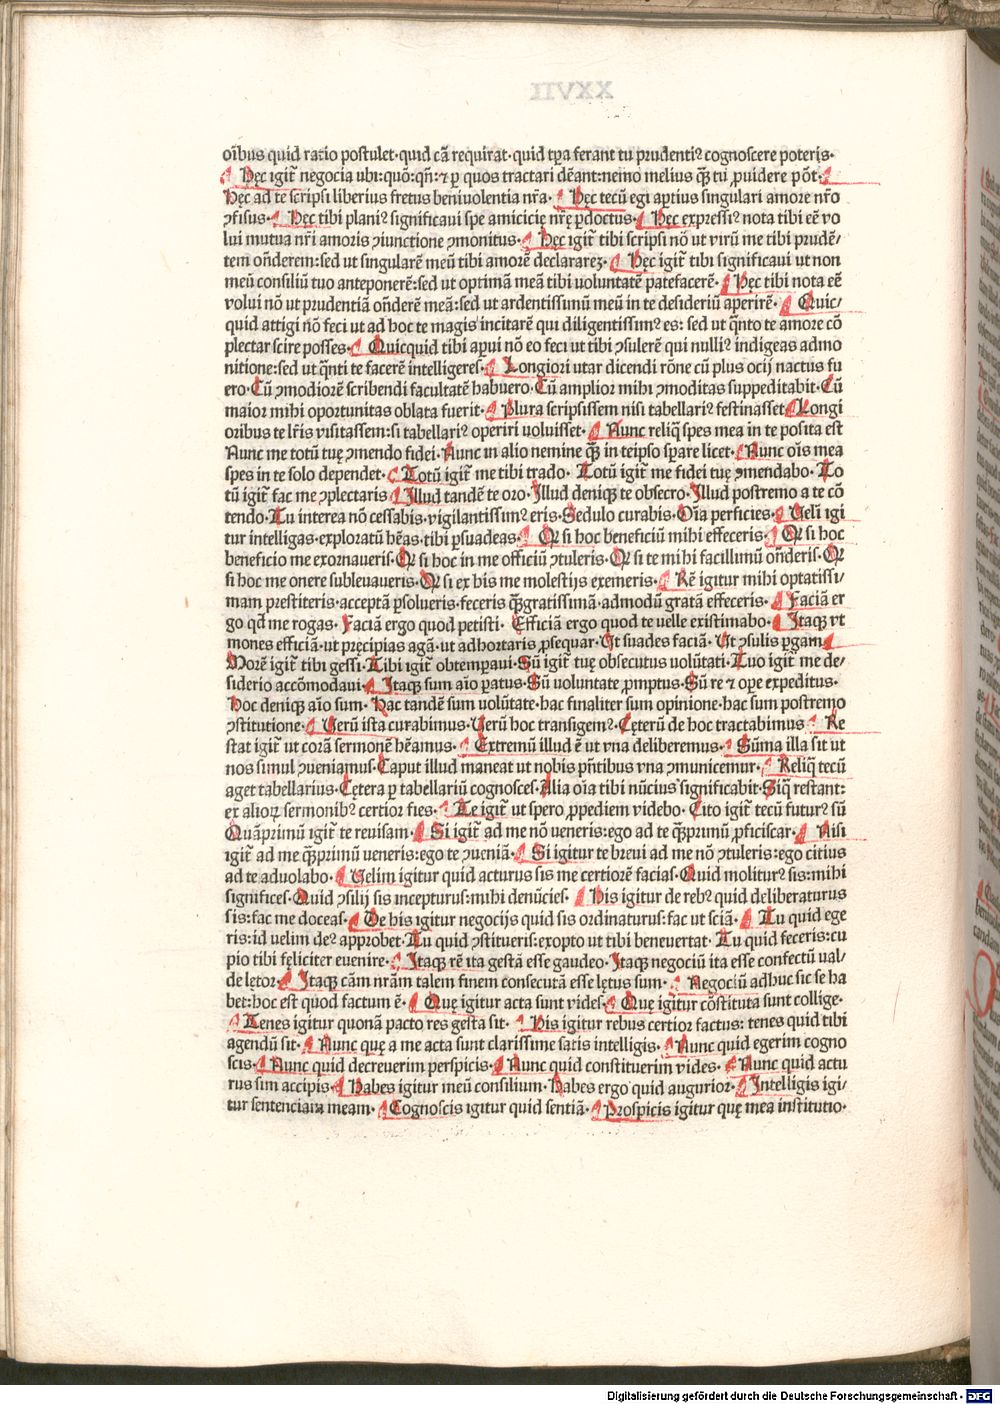 oībus quid ratio postulet·quid cā requirat·quid tp̄a ferant tu prudentiꝰ cognoscere poteris·
Hęc igit̄ negocia ubi:quō:qn̄:⁊ ꝑ quos tractari dēant:nemo melius qꝫ tu ꝓuidere pōt·
Hęc ad te scripsi liberius fretus beniuolentia nr̄a· Hęc tecū egi aptius singulari amore nr̄o
ꝯfisus· Hęc tibi planiꝰ significaui spe amicicię nr̄ę ꝑdoctus· Hęc expressiꝰ nota tibi eē vo
lui mutua nr̄i amoris ꝯiunctione ꝯmonitus· Hęc igit̄ tibi scripsi nō ut virū me tibi prudē/
tem on̄derem:sed ut singularē meū tibi amorē declararez· Hęc igit̄ tibi significaui ut non
meū consiliū tuo anteponerē:sed ut optimā meā tibi uoluntatē patefacerē· Hęc tibi nota eē
volui nō ut prudentiā on̄derē meā:sed ut ardentissimū meū in te desideriū aperirē· Quic/
quid attigi nō feci ut ad hoc te magis incitarē qui diligentissimꝰ es: sed ut qn̄to te amore cō
plectar scire posses· Quicquid tibi aꝑui nō eo feci ut tibi ꝯsulerē qui nulliꝰ indigeas admo
nitione:sed ut qn̄ti te facerē intelligeres· Longiori utar dicendi rōne cū plus ocij nactus fu
ero·Cū ꝯmodiorē scribendi facultatē habuero·Cū amplior mihi ꝯmoditas suppeditabit·Cū
maior mihi oportunitas oblata fuerit· Plura scripsissem nisi tabellariꝰ festinasset Longi
oribus te lr̄is visitassem:si tabellariꝰ operiri uoluisset· Nunc reliq̄ spes mea in te posita est
Nunc me totū tuę ꝯmendo fidei·Nunc in alio nemine qꝫ in teipso sꝑare licet· Nunc oīs mea
spes in te solo dependet· Totū igit̄ me tibi trado· Totū igit̄ me fidei tuę ꝯmendabo·To
tū igit̄ fac me ꝯplectaris Illud tandē te oro·Illud deniqꝫ te obsecro·Illud postremo a te cō
tendo·Tu interea nō cessabis·vigilantissimꝰ eris·Sedulo curabis·Oīa perficies· Velī igi
tur intelligas·exploratū hēas·tibi ꝑsuadeas· Qꝫ si hoc beneficiū mihi effeceris· Qꝫ si hoc
beneficio me exornaueris·Qꝫ si hoc in me officiū ꝯtuleris·Qꝫ si te mihi facillimū on̄deris·Qꝫ
si hoc me onere subleuaueris·Qꝫ si ex his me molestijs exemeris· Rē igitur mihi optatissi/
mam prestiteris·acceptā ꝑsolueris·feceris qꝫgratissimā·admodū gratā effeceris· Faciā er
go qd me rogas· Faciā ergo quod petisti· Efficiā ergo quod te uelle existimabo· Itaqꝫ vt
mones efficiā·ut pręcipias agā·ut adhortaris ꝓsequar·Ut suades faciā· Ut ꝯsulis ꝑgam
Morē igit̄ tibi gessi·Tibi igit̄ obtempaui·Sū igit̄ tuę obsecutus uolūtati·Tuo igit̄ me de/
siderio accōmodaui· Itaqꝫ sum aīo ꝑatus·Sū uoluntate ꝓmptus·Sū re ⁊ oꝑe expeditus·
Hoc deniqꝫ aīo sum· Hac tandē sum uolūtate·hac finaliter sum opinione·hac sum postremo
ꝯstitutione· Verū ista curabimus·Verū hoc transigemꝰ·Ceterū de hoc tractabimus Re
stat igit̄ ut corā sermonē hēamus· Extremū illud ē ut vna deliberemus· Sūma illa sit ut
nos simul ꝯueniamus·Caput illud maneat ut nobis pn̄tibus vna ꝯmunicemur· Reliq̄ tecū
aget tabellarius·Cetera ꝑ tabellariū cognosces·Alia oīa tibi nūcius significabit·Siq̄ restant:
ex alioꝝ sermonibꝰ certior fies· Te igit̄ ut spero ꝓpediem videbo· Cito igit̄ tecū futurꝰ sū
Quāprimū igit̄ te reuisam· Si igit̄ ad me nō veneris:ego ad te qꝫprimū ꝓficiscar· Nisi
igit̄ ad me qꝫprimū ueneris:ego te ꝯueniā· Si igitur te breui ad me nō ꝯtuleris:ego citius
ad te aduolabo· Velim igitur quid acturus sis me certiorē facias·Quid moliturꝰ sis:mihi
significes·Quid ꝯsilij sis incepturus:mihi denūcies· His igitur de rebꝰ quid deliberaturus
sis:fac me doceas· De his igitur negocijs quid sis ordinaturus:fac ut sciā· Tu quid ege
ris:id uelim deꝰ approbet·Tu quid ꝯstitueris:exopto ut tibi beneuertat· Tu quid feceris:cu
pio tibi fęliciter euenire· Itaqꝫ rē ita gestā esse gaudeo·Itaqꝫ negociū ita esse confectū ual/
de lętor· Itaqꝫ cām nr̄am talem finem consecutā esse lętus sum· Negociū adhuc sic se ha
bet:hoc est quod factum ē· Quę igitur acta sunt vides· Quę igitur cōstituta sunt collige·
Tenes igitur quonā pacto res gesta sit· His igitur rebus certior factus: tenes quid tibi
agendū sit· Nunc quę a me acta sunt clarissime satis intelligis· Nunc quid egerim cogno
scis· Nunc quid decreuerim perspicis· Nunc quid constituerim vides· Nunc quid actu
rus sim accipis· Habes igitur meū consilium·Habes ergo quid augurior· Intelligis igi/
tur sentenciam meam· Cognoscis igitur quid sentiā· Prospicis igitur quę mea institutio·
Digitalisierung gefördert durch die Deutsche Forschungsgemeinschaft - DFG